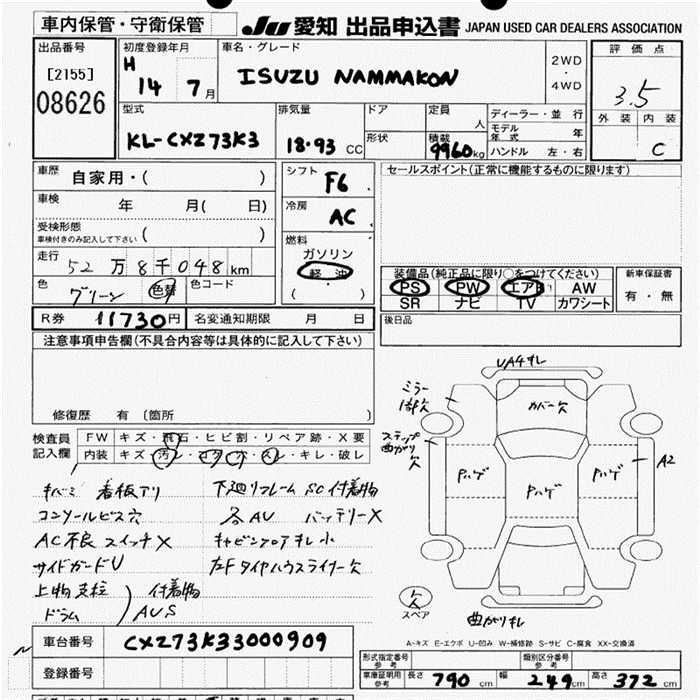 車内保管・守衛保管
JU 愛知 出品申込書 JAPAN USED CAR DEALERS ASSOCIATION
出品番号 初度登録年月 車名・グレード 評価点
[2155] H 14 7月 ISUZU NAMMAKON 2WD・4WD 3.5
08626 外装 内装
型式 排気量 ドア 定員 人 ディーラー・並行
KL-CXZ73K3 18.93 CC 形状 積載 9960kg モデル年式 年 C
ハンドル 左・右
車歴 自家用・( ) シフト F6 セールスポイント(正常に機能するものに限ります)
車検 年 月( 日) 冷房 AC
受検形態
車検付きのみ記入して下さい ( )
燃料
走行 52万8千048km ガソリン
軽油
( )
装備品(純正品に限り○をつけてください) 新車保証書
色 グリーン 色替 色コード PS PW エアB AW 有・無
SR ナビ TV カワシート
R券 11730円 名変通知期限 月 日 後日品
注意事項申告欄(不具合内容等は具体的に記入して下さい)
修復歴 有〔箇所 〕
UA4キレ
ミラー
1部欠
カバー欠
ステップ
曲がり
欠
Pハゲ Pハゲ Pハゲ A2
検査員 FW キズ・飛石・ヒビ割・リペア跡・X要
記入欄 内装 キズ・汚レ・コゲ・穴・スレ・キレ・破レ
キバミ 看板アリ 下廻リフレーム SC付着物
コンソールビス穴 各AU バッテリーX
AC不良 スイッチX キャビンクロアキレ小
サイドガードU 左Fタイヤハウスライナー欠
上物支柱 付着物
ドラム AUS
欠
スペア
曲がりキレ
A-キズ E-エクボ U-凹み W-補修跡 S-サビ C-腐食 XX-交換済
車台番号 CXZ73K33000909
登録番号
形式指定番号 参考 類別区分番号 参考
車庫証明用 参考 長さ 790cm 幅 249cm 高さ 372cm